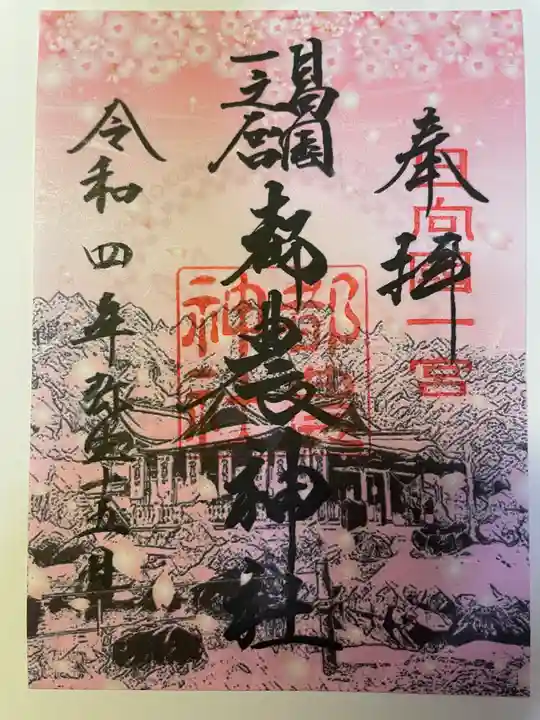 奉拝
日向國一宮
日向國
一之宮
都農神社
都農
神社
令和四年弥生十五日